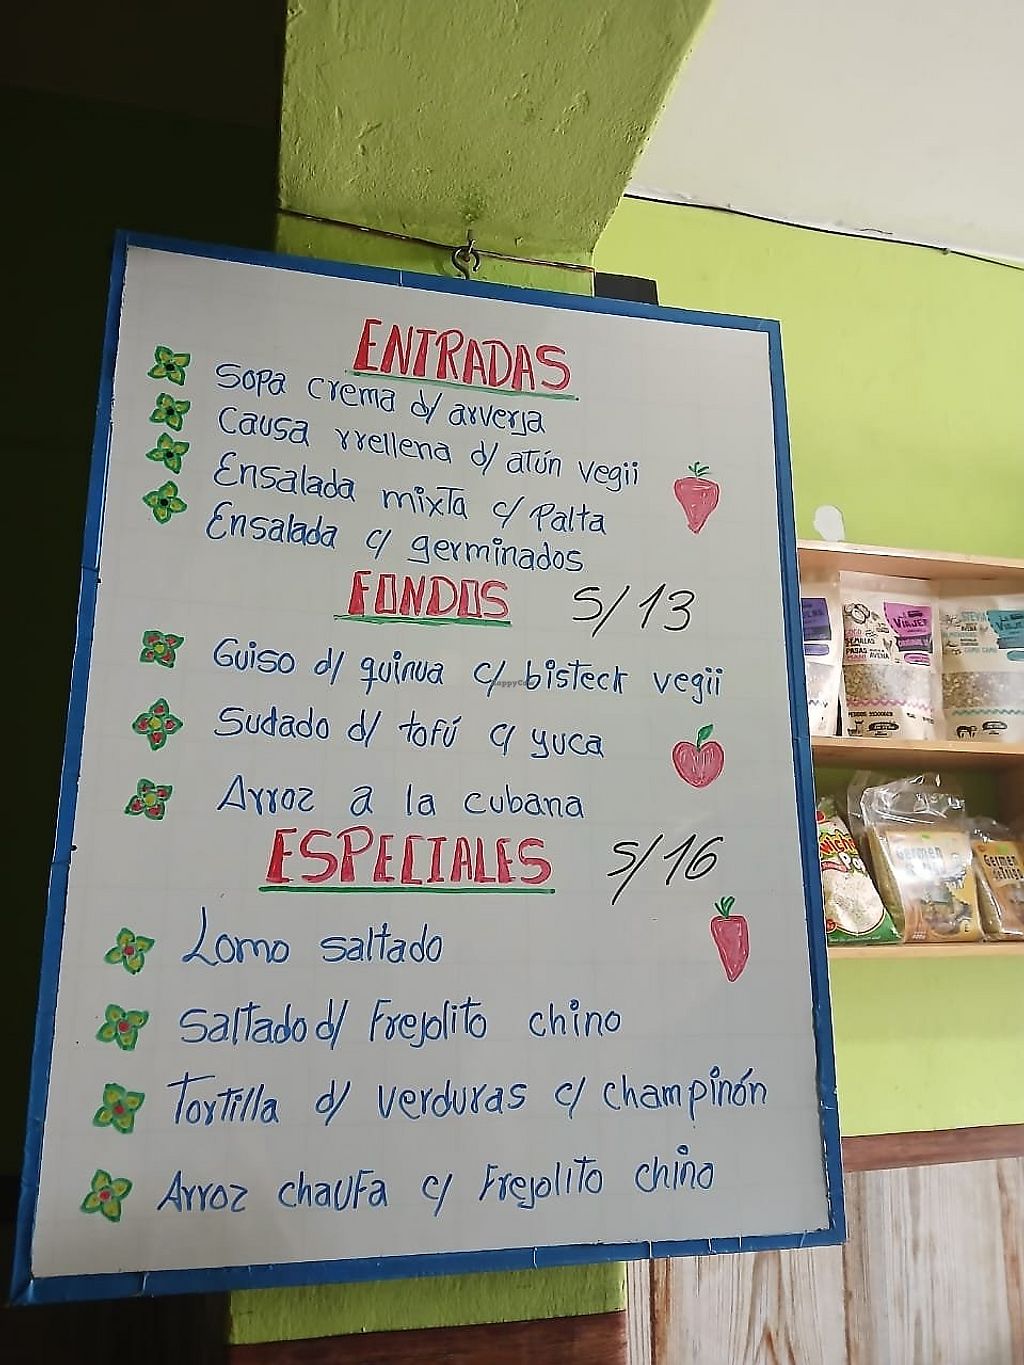 ENTRADAS
Sopa crema d/ arverja
Causa rrellena d/ atún vegii
Ensalada mixta c/ Palta
Ensalada c/ germinados
FONDOS S/13
Guiso d/ quinua c/ bisteck vegii
HappyCow
Sudado d/ tofú c/ yuca
Arroz a la cubana
ESPECIALES S/16
Lomo saltado
Saltado d/ Frejolito chino
Tortilla d/ verduras c/ champinón
Arroz chaufa c/ Frejolito chino
VIAJE
PASAS
MANI AVENA
STEVIA
Germen
Germen
de trigo